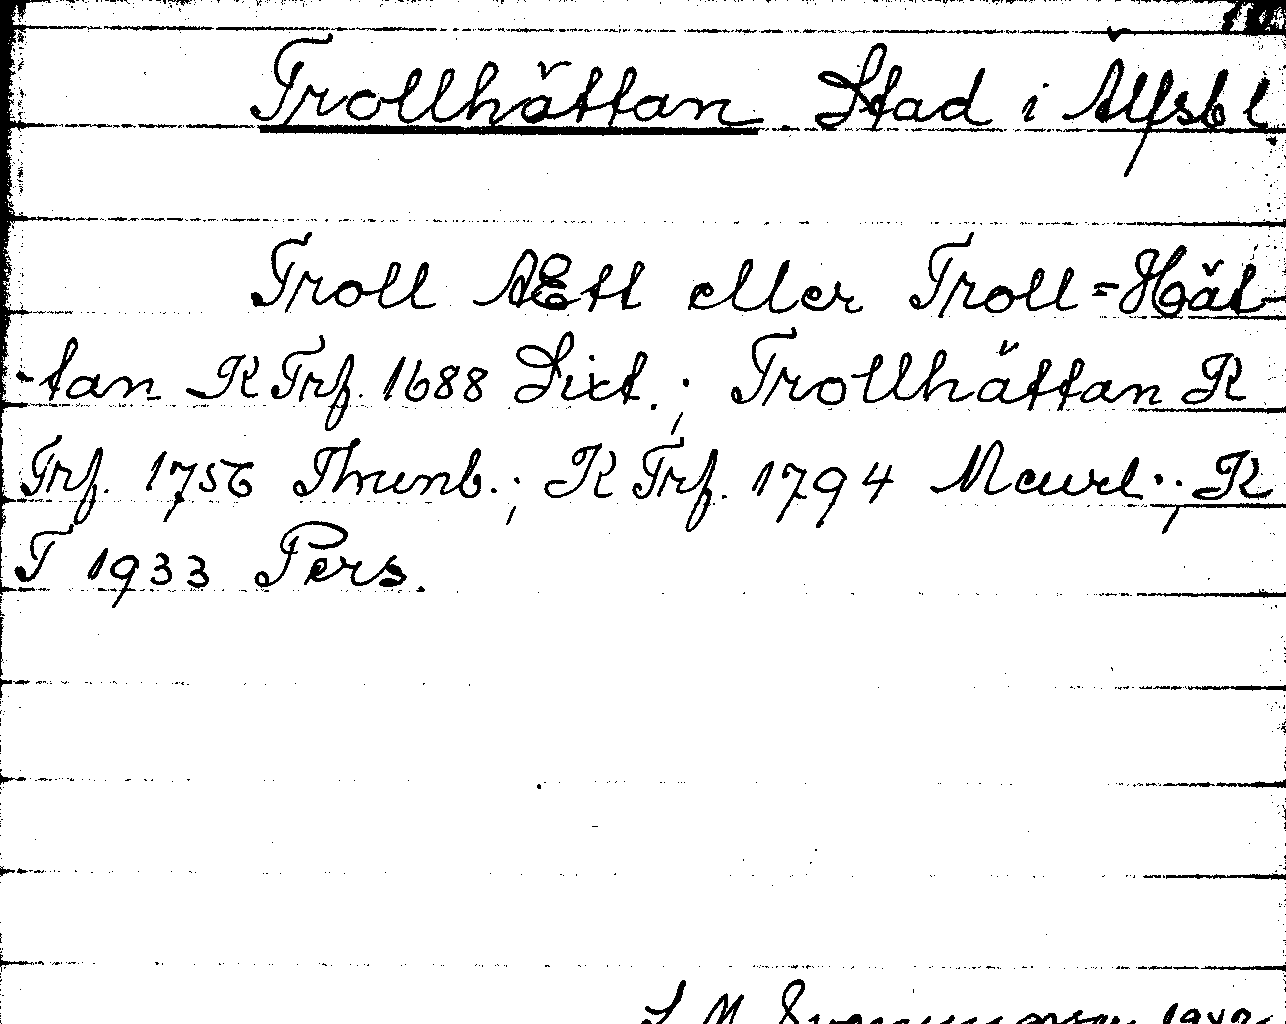 Trollhättan Stad i Älfsb l
Troll ÆEtt eller Troll=Hät-
-tan K Trf. 1688 Dixt.; Trollhättan K
Trf. 1756 Thunb.; K Trf. 1794 Meurl.; K
T 1933 Pers.